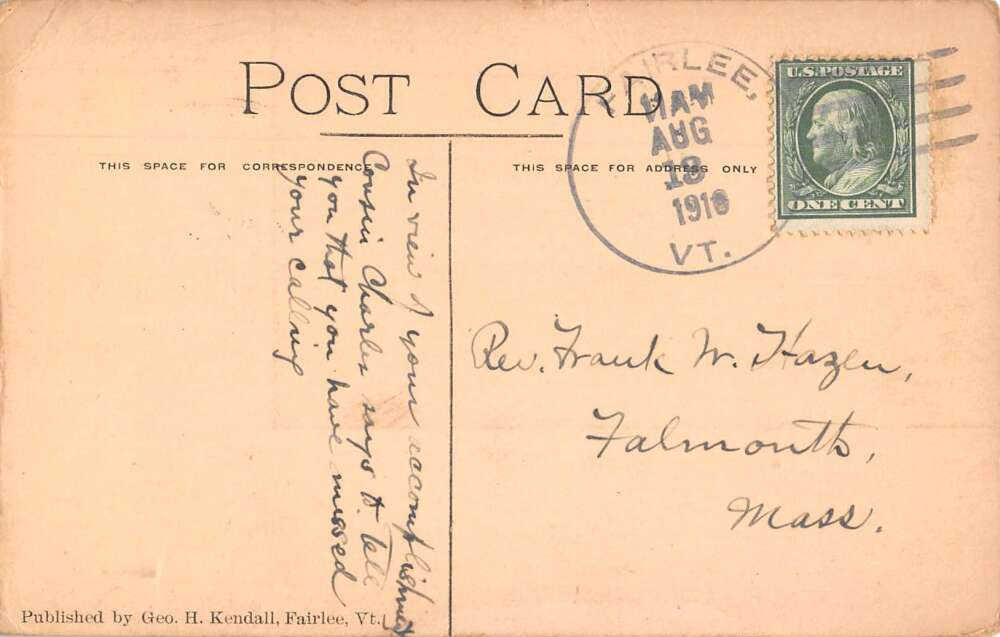 POST CARD
THIS SPACE FOR CORRESPONDENCE
THIS SPACE FOR ADDRESS ONLY
FAIRLEE,
11AM
AUG
13
1910
VT.
U.S. POSTAGE
ONE CENT
In view of your accomplishments
Cousin Charles says to tell
you that you have missed
your calling
Rev. Frank W. Hazen,
Falmouth,
Mass.
Published by Geo. H. Kendall, Fairlee, Vt.